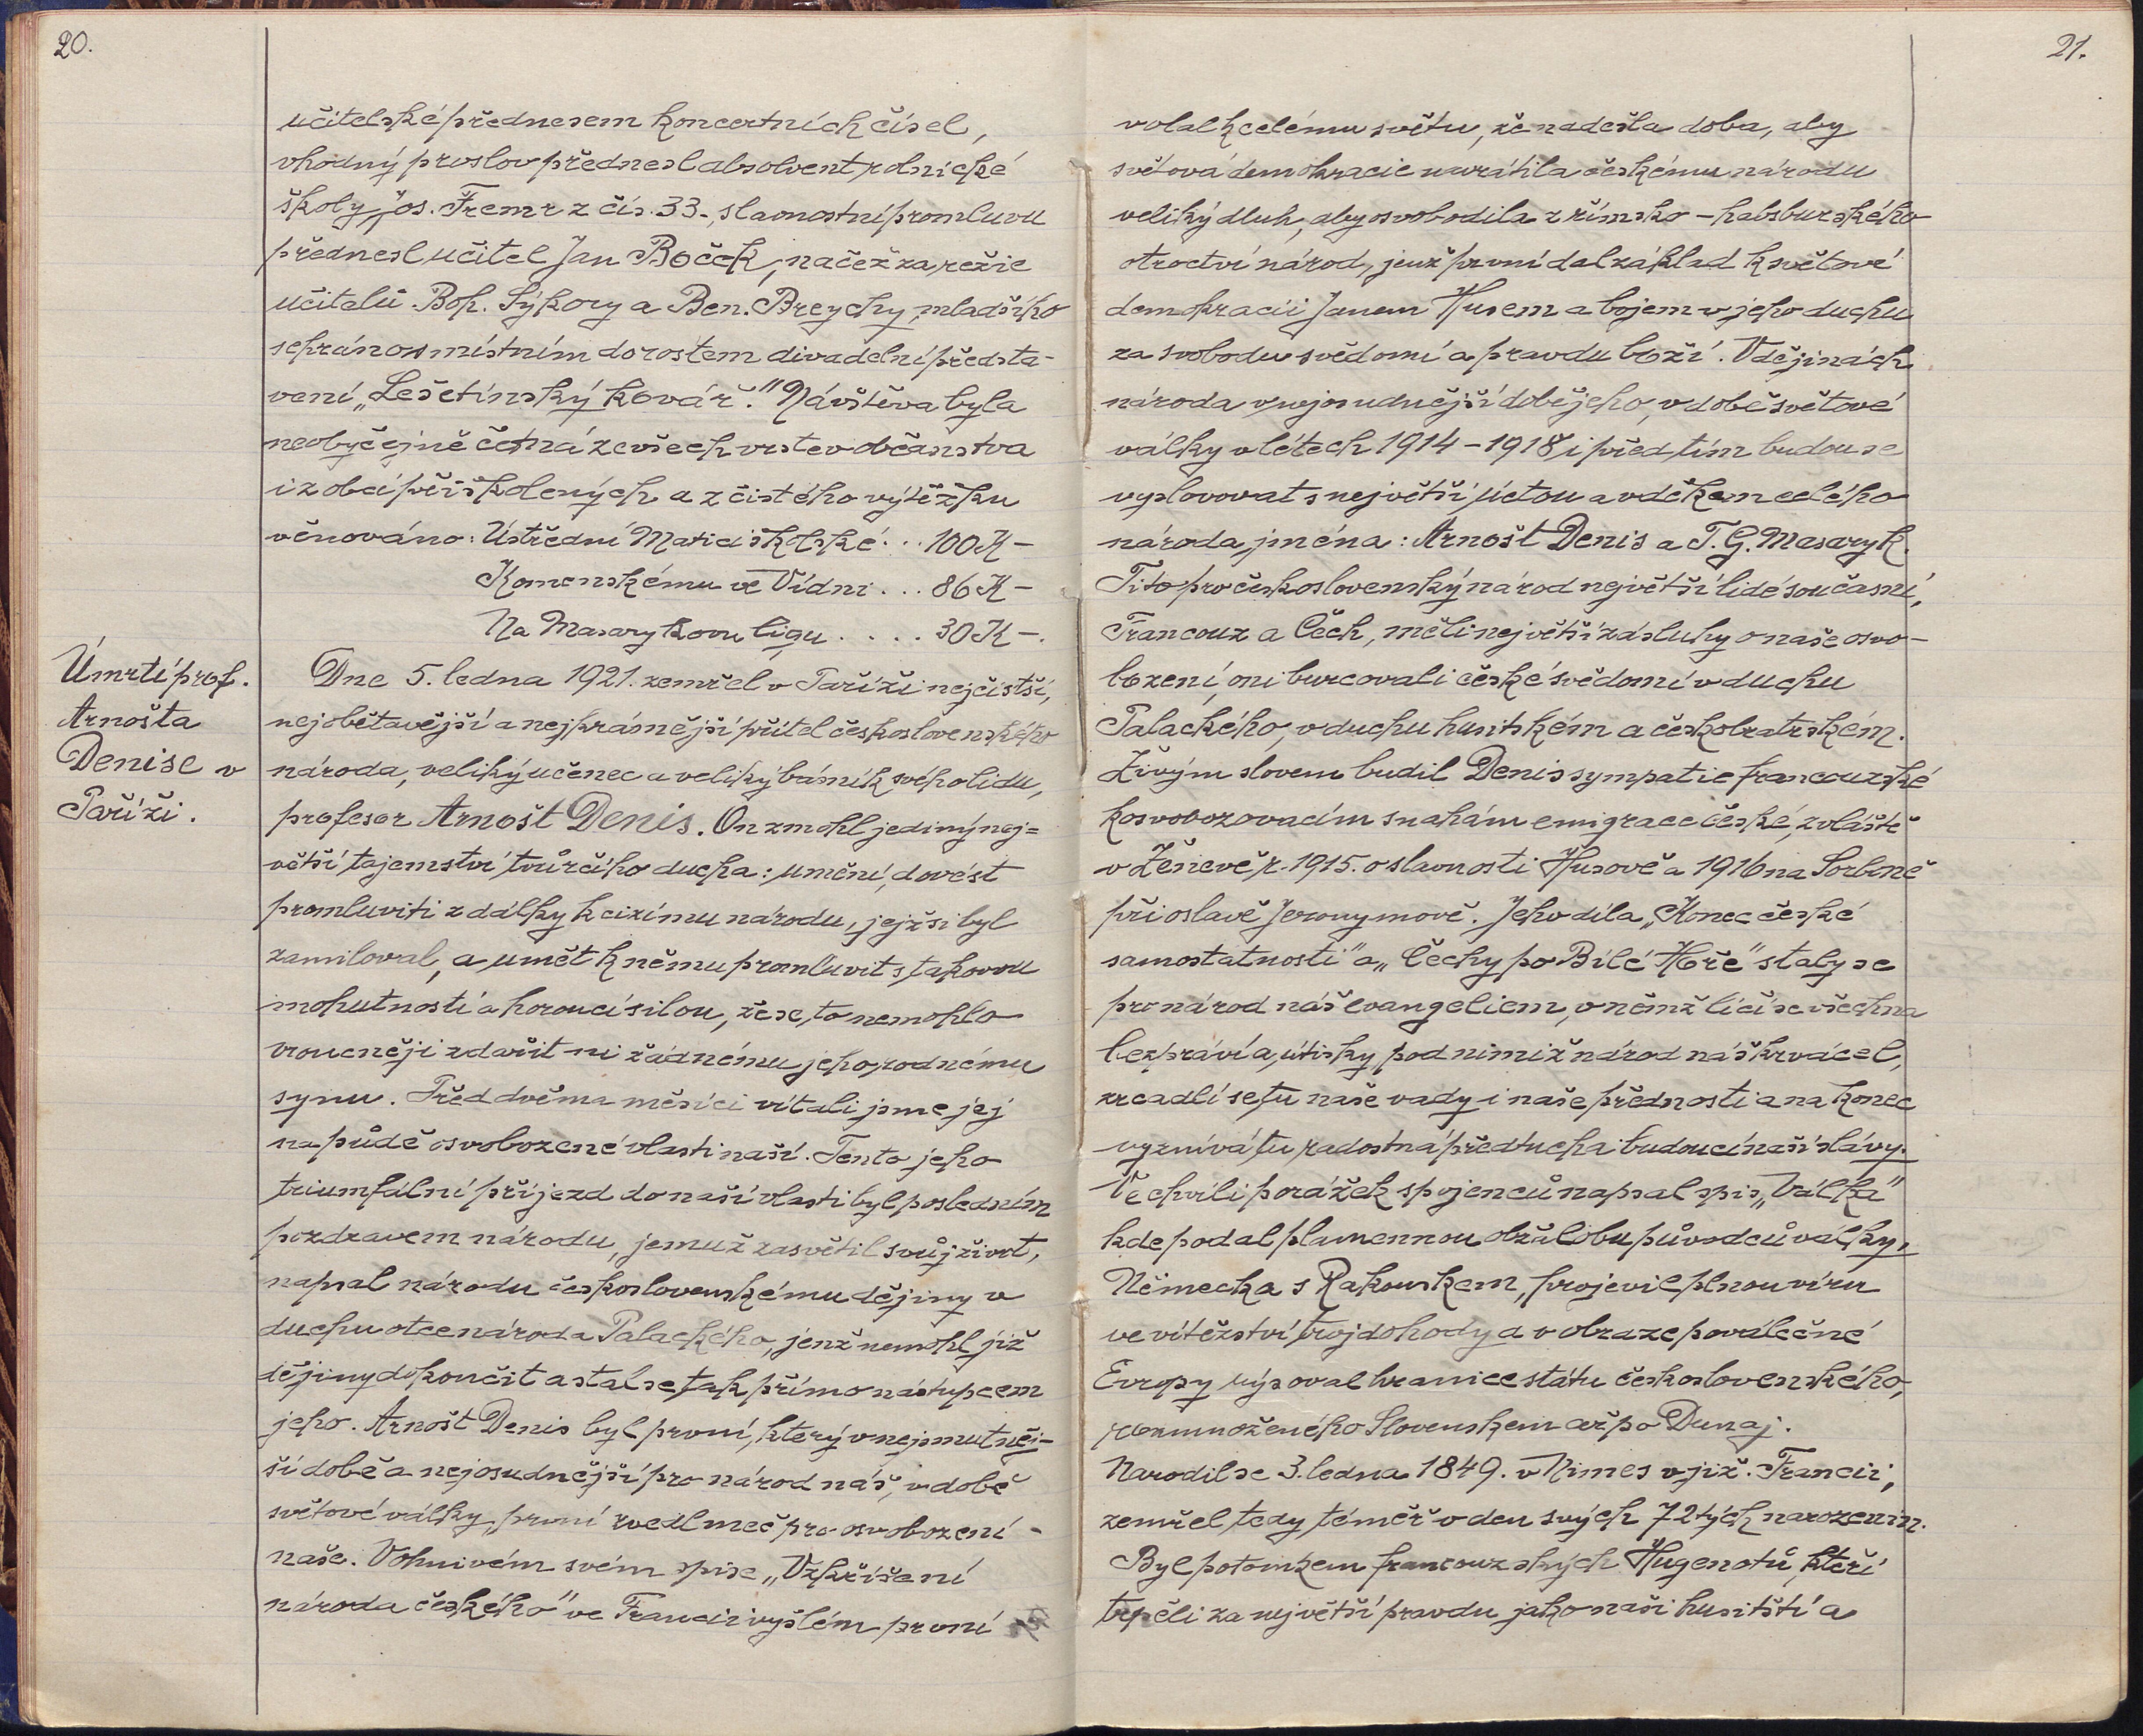 20.
učitelské přednesem koncertních čísel,
vhodný proslov přednesl absolvent rolnické
školy Jos. Fremr z čís. 33., slavnostní promluvu
přednesl učitel Jan Boček, načež za režie
učitelů Boh. Sýkory a Ben. Breychy mladšího
sehráno místním dorostem divadelní předsta-
vení „Lešetínský kovář." Návštěva byla
neobyčejně četná ze všech vrstev občanstva
i z obcí přiškolených a z čistého výtěžku
věnováno: Ústřední Matici školské... 100 K –
Komenskému ve Vídni... 86 K –
Na Masarykovu ligu.... 30 K –.
Úmrtí prof.
Arnošta
Denise v
Paříži.
Dne 5. ledna 1921. zemřel v Paříži nejčistší,
nejobětavější a nejkrásnější přítel československého
národa, veliký učenec a veliký básník svého lidu,
profesor Arnošt Denis. On zmohl jediný nej=
větší tajemství tvůrčího ducha: umění, dovést
promluviti z dálky k cizímu národu, jejž si byl
zamiloval, a umět k němu promluvit s takovou
mohutností a horoucí silou, že se to nemohlo
vroucněji zdařit ni žádnému jeho rodnému
synu. Před dvěma měsíci vítali jsme jej
na půdě osvobozené vlasti naší. Tento jeho
triumfální příjezd do naší vlasti byl posledním
pozdravem národu, jemuž zasvětil svůj život,
napsal národu československému dějiny v
duchu otce národa Palackého, jenž nemohl již
dějiny dokončit a stal se tak přímo nástupcem
jeho. Arnošt Denis byl první, který v nejsmutněj-
ší době a nejosudnější pro národ náš, v době
světové války, první zvedl meč pro osvobození
naše. V ohnivém svém spise „Vzkříšení
národa českého" ve Francii vyšlém první
21.
volal k celému světu, že nadešla doba, aby
světová demokracie navrátila českému národu
veliký dluh, aby osvobodila z římsko – habsburského
otroctví národ, jenž první dal základ k světové
demokracii Janem Husem a bojem v jeho duchu
za svobodu svědomí a pravdu boží. V dějinách
národa v nejosudnější době jeho, v době světové
války v létech 1914 – 1918 i před tím budou se
vyslovovat s největší úctou a vděkem celého
národa jména: Arnošt Denis a T. G. Masaryk.
Tito pro československý národ největší lidé současní,
Francouz a Čech, měli největší zásluhy o naše osvo-
bození, oni burcovali české svědomí v duchu
Palackého, v duchu husitském a českobratrském.
Živým slovem budil Denis sympatie francouzské
k osvobozovacím snahám emigrace české, zvláště
v Ženevě r. 1915. o slavnosti Husově a 1916 na Sorbně
při oslavě Jeronymově. Jeho díla „Konec české
samostatnosti" a „Čechy po Bílé Hoře" staly se
pro národ náš evangeliem, v němž líčí se všechna
bezpráví a útisky, pod nimiž národ náš krvácel,
zrcadlí se tu naše vady i naše přednosti a na konec
vyznívá tu radostná předtucha budoucí naší slávy.
Ve chvíli porážek spojenců napsal spis „Válka"
kde podal plamennou obžalobu původců války,
Německa s Rakouskem, projevil plnou víru
ve vítězství trojdohody a v obraze poválečné
Evropy rýsoval hranice státu československého,
rozmnoženého Slovenskem až po Dunaj.
Narodil se 3. ledna 1849. v Nimes v již. Francii,
zemřel tedy téměř v den svých 72tých narozenin.
Byl potomkem francouzských Hugenotů, kteří
trpěli za největší pravdu jako naši husitští a